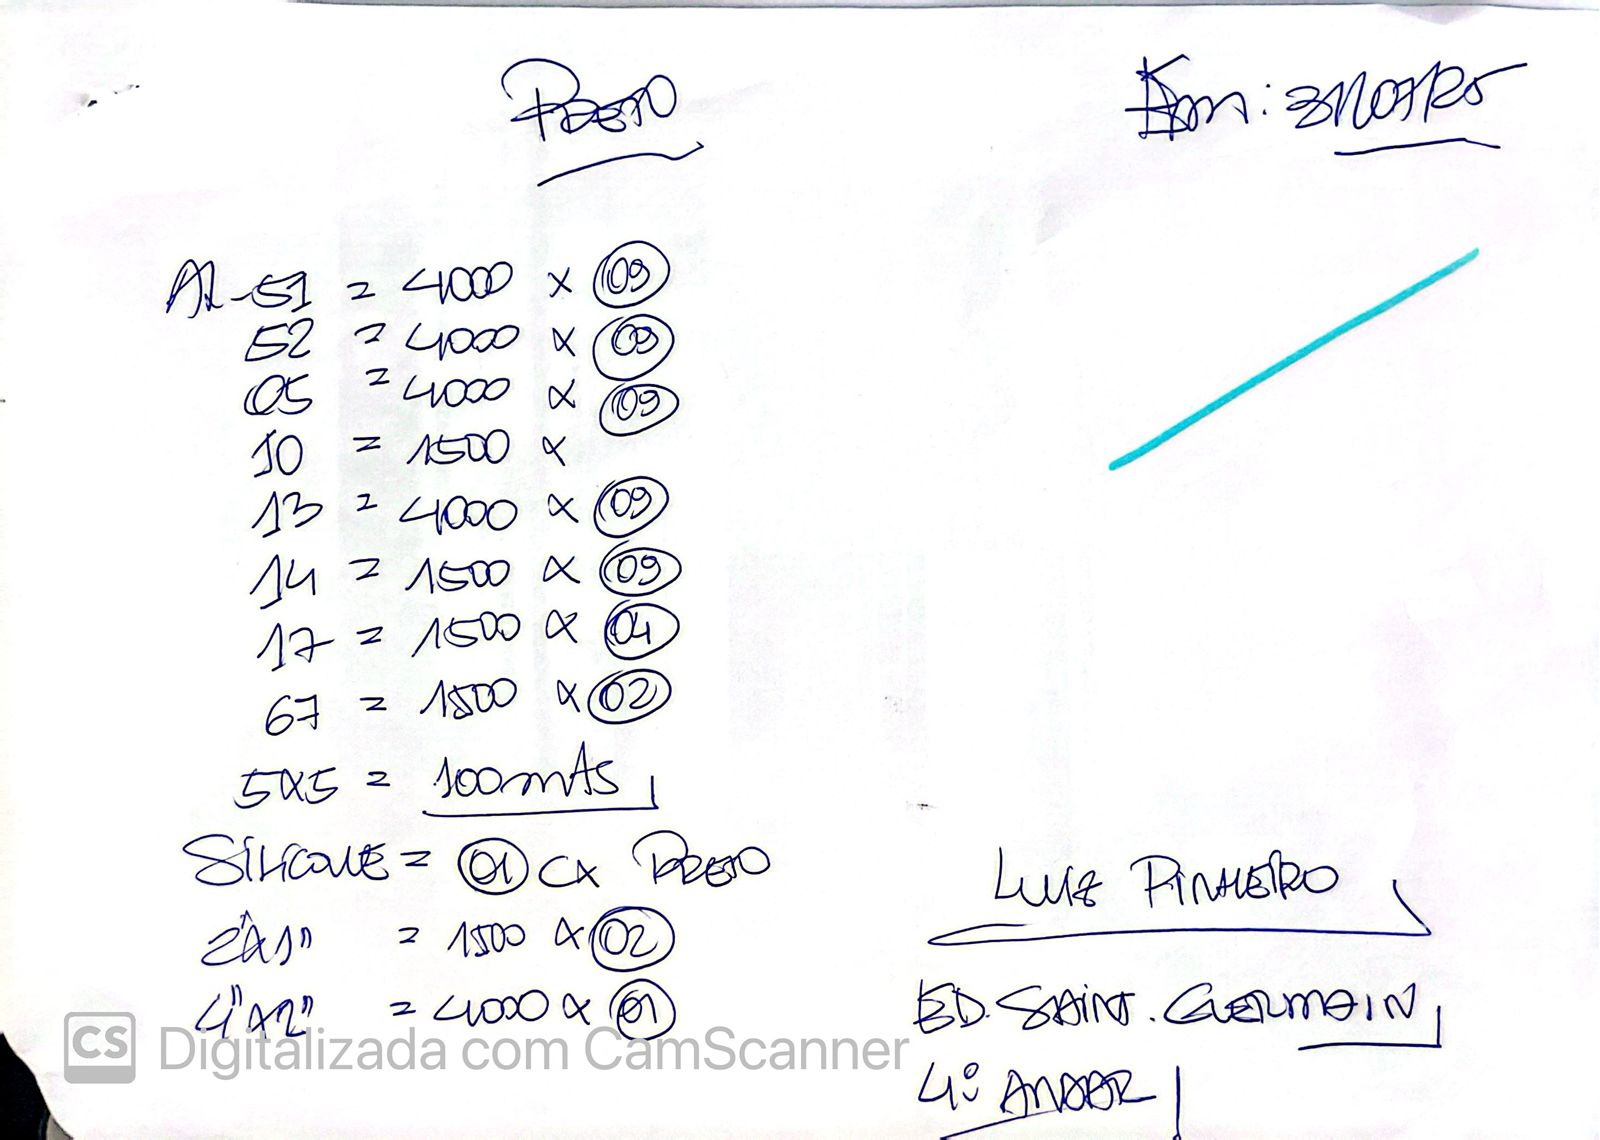 PRETO
Em: 31/07/25
AL-51 = 4000 x 09
52 = 4000 x 09
05 = 4000 x 09
10 = 1500 x
13 = 4000 x 09
14 = 1500 x 09
17 = 1500 x 04
67 = 1500 x 02
5x5 = 100 mts
SILICONE = 01 CX PRETO
2"x1" = 1500 x 02
4"x2" = 4000 x 01
LUIZ PINHEIRO
ED. SAINT. GERMAIN
4º ANDAR
CS Digitalizada com CamScanner